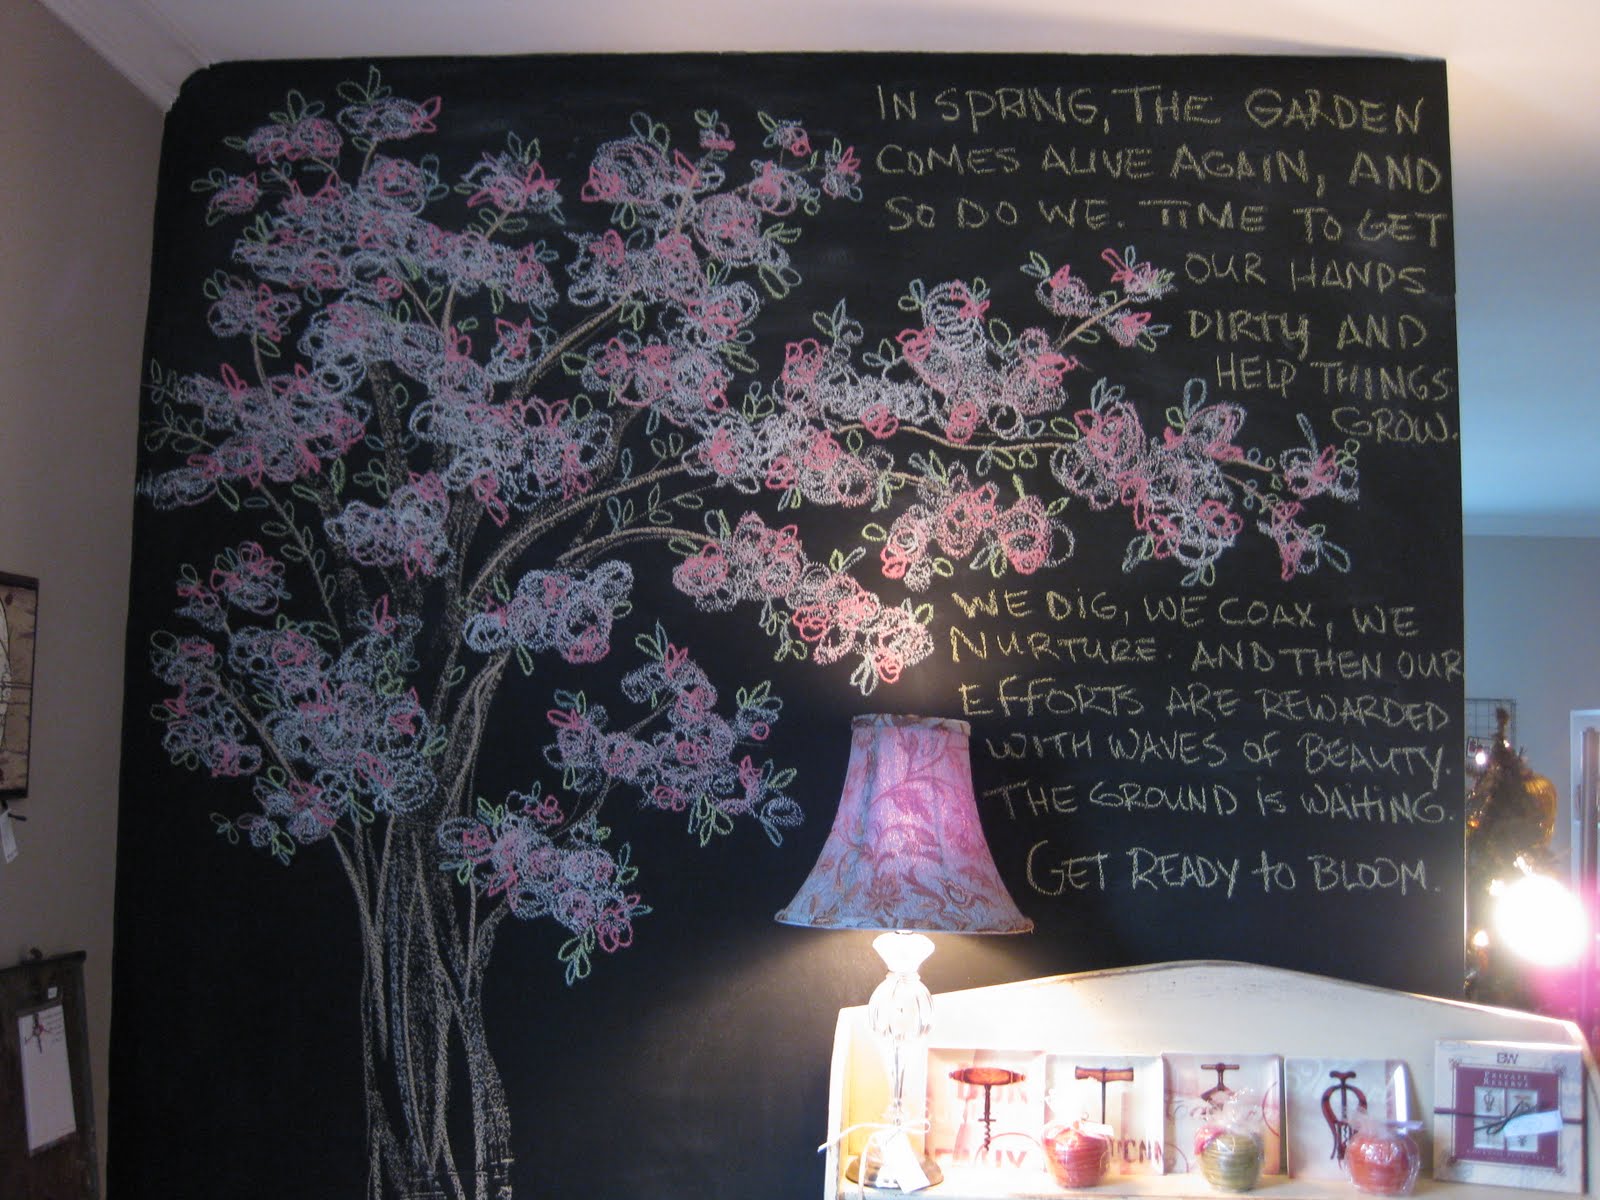 IN SPRING, THE GARDEN
COMES ALIVE AGAIN, AND
SO DO WE. TIME TO GET
OUR HANDS
DIRTY AND
HELP THINGS
GROW.
WE DIG, WE COAX, WE
NURTURE. AND THEN OUR
EFFORTS ARE REWARDED
WITH WAVES OF BEAUTY.
THE GROUND IS WAITING.
GET READY TO BLOOM.
BW
PRIVATE
RESERVE